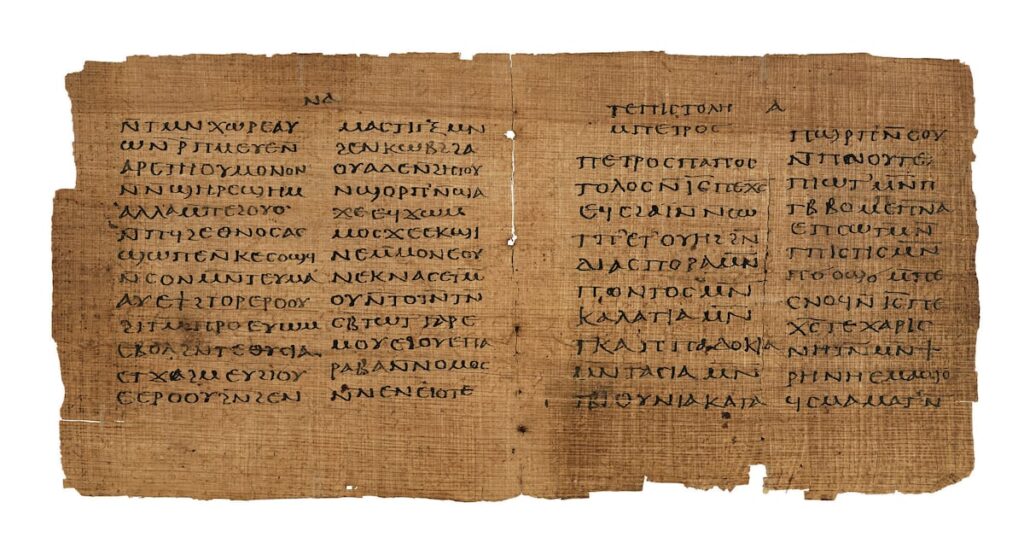 ⲛⲁ
ⲛ̄ⲧⲙⲛⲭⲱⲣⲉⲁⲩ
ⲱⲛⲣⲡⲙⲉⲩⲉⲛ
ⲁⲣⲉⲧⲏⲟⲩⲙⲟⲛⲟⲛ
ⲛⲛϣⲏⲣⲉϣⲏⲙ
ⲁⲗⲗⲁⲙⲡⲉϩⲟⲩⲟ
ⲛ̄ⲡϥϩⲉⲑⲛⲟⲥⲁⲥ
ϣⲱⲡⲉⲛⲕⲉⲥⲟⲡ
ⲛ̄ⲥⲟⲛⲙⲛⲧⲉⲩⲙⲁ
ⲁⲩⲉϯϩⲧⲟⲣⲉⲣⲟⲟⲩ
ϩⲓⲧⲙⲡⲣⲟⲉⲩⲱⲙ
ⲉⲃⲟⲗϩⲛⲧⲉⲑⲩⲥⲓⲁ
ⲉⲧϫⲁϩⲙⲉⲩϩⲓⲟⲩ
ⲉⲉⲣⲟⲟⲩϩⲛϩⲉⲛ
ⲙⲁⲥⲧⲓⲅⲝⲙⲛ
ϩⲉⲛⲕⲱⲃϩϩⲁ
ⲟⲩⲁⲇⲉⲛϩⲏⲧⲟⲩ
ⲛϣⲟⲣⲡⲛ̄ϣⲁ
ϫⲉⲉϥϫⲱⲙ
ⲙⲟⲥϫⲉⲉⲕϣⲓ
ⲛⲉⲙ̄ⲙⲟⲛⲉⲟⲩ
ⲛⲉⲕⲛⲁⲥⲉⲧⲙ
ⲟⲩⲛ̄ⲧⲟⲓⲛⲧⲛ
ⲥⲃⲧⲱⲧⲅⲁⲣⲉ
ⲙⲟⲩⲉϩⲟⲩⲉⲡⲁ
ⲣⲁⲃⲁⲛⲛⲟⲙⲟⲥ
ⲛ̄ⲛⲉⲛⲉⲓⲟⲧⲉ
ⲧⲉⲡⲓⲥⲧⲟⲗⲏ ⲁ
ⲙⲡⲉⲧⲣⲟⲥ
ⲡⲉⲧⲣⲟⲥⲡⲁⲡⲟⲥ
ⲧⲟⲗⲟⲥⲛ̄ⲓ̄ⲥ̄ⲡⲉⲭⲥ
ⲉϥⲥϩⲁⲓⲛⲛⲥⲱ
ⲧⲡⲉⲧⲟⲩⲏϩϩⲛ
ⲇⲓⲁⲥⲡⲟⲣⲁⲙ̄ⲛ
ⲡⲟⲛⲧⲟⲥⲙⲛ
ⲕⲁⲗⲁⲧⲓⲁⲙ̄ⲛ
ⲧⲕⲁⲡⲡⲁⲇⲟⲕⲓⲁ
ⲙⲛⲧⲁⲥⲓⲁⲙⲛ
ⲧⲃⲓⲑⲩⲛⲓⲁⲕⲁⲧⲁ
ⲡϣⲣⲡⲛ̄ⲥⲟⲩ
ⲛⲡⲛⲟⲩⲧⲉ
ⲡⲓⲱⲧⲙ̄ⲛⲡ
ⲧⲃⲃⲟⲙⲡⲉⲡⲛⲁ
ⲉⲡⲥⲱⲧⲙⲛ
ⲧⲡⲓⲥⲧⲓⲥⲙⲛ
ⲡϭⲟϣϭϣⲙⲡⲉ
ⲥⲛⲟϥⲛ̄ⲓ̄ⲥ̄ⲡⲉ
ⲭ̄ⲥ̄ⲧⲉⲭⲁⲣⲓⲥ
ⲛⲏⲧⲛⲙⲛϯ
ⲣⲏⲛⲏⲉⲙⲁϣⲟ
ϥⲥⲙⲁⲙⲁⲧⲛ